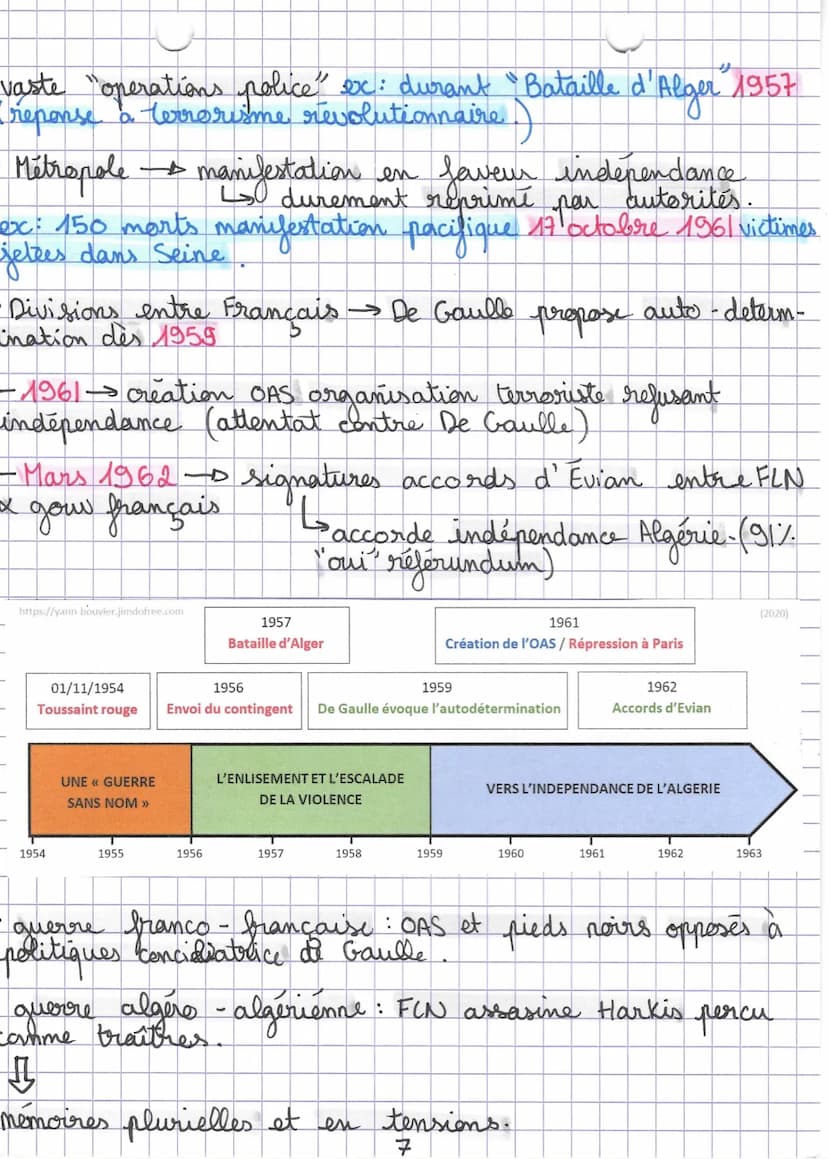 vaste "operations police" ex: durant "Bataille d'Alger" 1957
(réponse à terrorisme révolutionnaire.)
Métropole → manifestation en faveur indépendance
↳ durement réprimé par autorités.
ex: 150 morts manifestation pacifique 17 octobre 1961 victimes
jetées dans Seine.
Divisions entre Français → De Gaulle propose auto-determ-
ination dès 1959
- 1961 → création OAS organisation terroriste refusant
indépendance (attentat contre De Gaulle)
- Mars 1962 → signatures accords d'Évian entre FLN
& gouv français
↳ accorde indépendance Algérie. (91%
"oui" référundum)
https://yann-bouvier.jimdofree.com
(2020)
1957
Bataille d'Alger
1961
Création de l'OAS / Répression à Paris
01/11/1954
Toussaint rouge
1956
Envoi du contingent
1959
De Gaulle évoque l'autodétermination
1962
Accords d'Evian
UNE « GUERRE
SANS NOM »
L'ENLISEMENT ET L'ESCALADE
DE LA VIOLENCE
VERS L'INDEPENDANCE DE L'ALGERIE
1954 1955 1956 1957 1958 1959 1960 1961 1962 1963
guerre franco-française : OAS et pieds noirs opposés à
politiques de Gaulle.
guerre algéro-algérienne : FLN assasine Harkis percu
comme traîtres.
⇓
mémoires plurielles et en tensions.
7